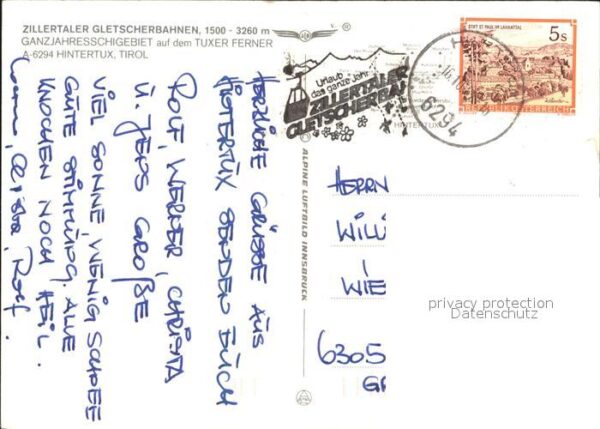 ZILLERTALER GLETSCHERBAHNEN, 1500 - 3260 m
GANZJAHRESSCHIGEBIET auf dem TUXER FERNER
A-6294 HINTERTUX, TIROL
HERZLICHE GRÜSSE AUS
HINTERTUX SENDEN EUCH
ROLF, WERNER, CHRISTA
U. JENS GROßE
VIEL SONNE, WENIG SCHNEE
GUTE STIMMUNG. ALLE
KNOCHEN NOCH HEIL.
Rolf.
ALPINE LUFTBILD INNSBRUCK
Urlaub
das ganze Jahr
ZILLERTALER
GLETSCHERBAH
HINTERTUX
6294
STIFT ST. PAUL IM LAVANTTAL
5s
REPUBLIK ÖSTERREICH
HERRN
WILLI
WIE
6305
privacy protection
Datenschutz